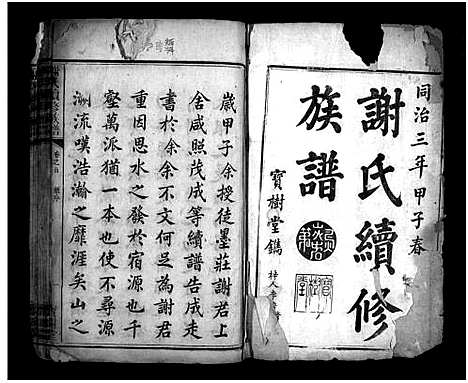 同治三年甲子春
謝氏續修
族譜
寶樹堂鐫
歲甲子余授徒墨莊謝君上
舍咸照茂成等續譜告成走
書於余余不文何足為謝君
重因思水之發於宿源也千
壑萬派猶一本也使不尋源
溯流嘆浩瀚之靡涯矣山之